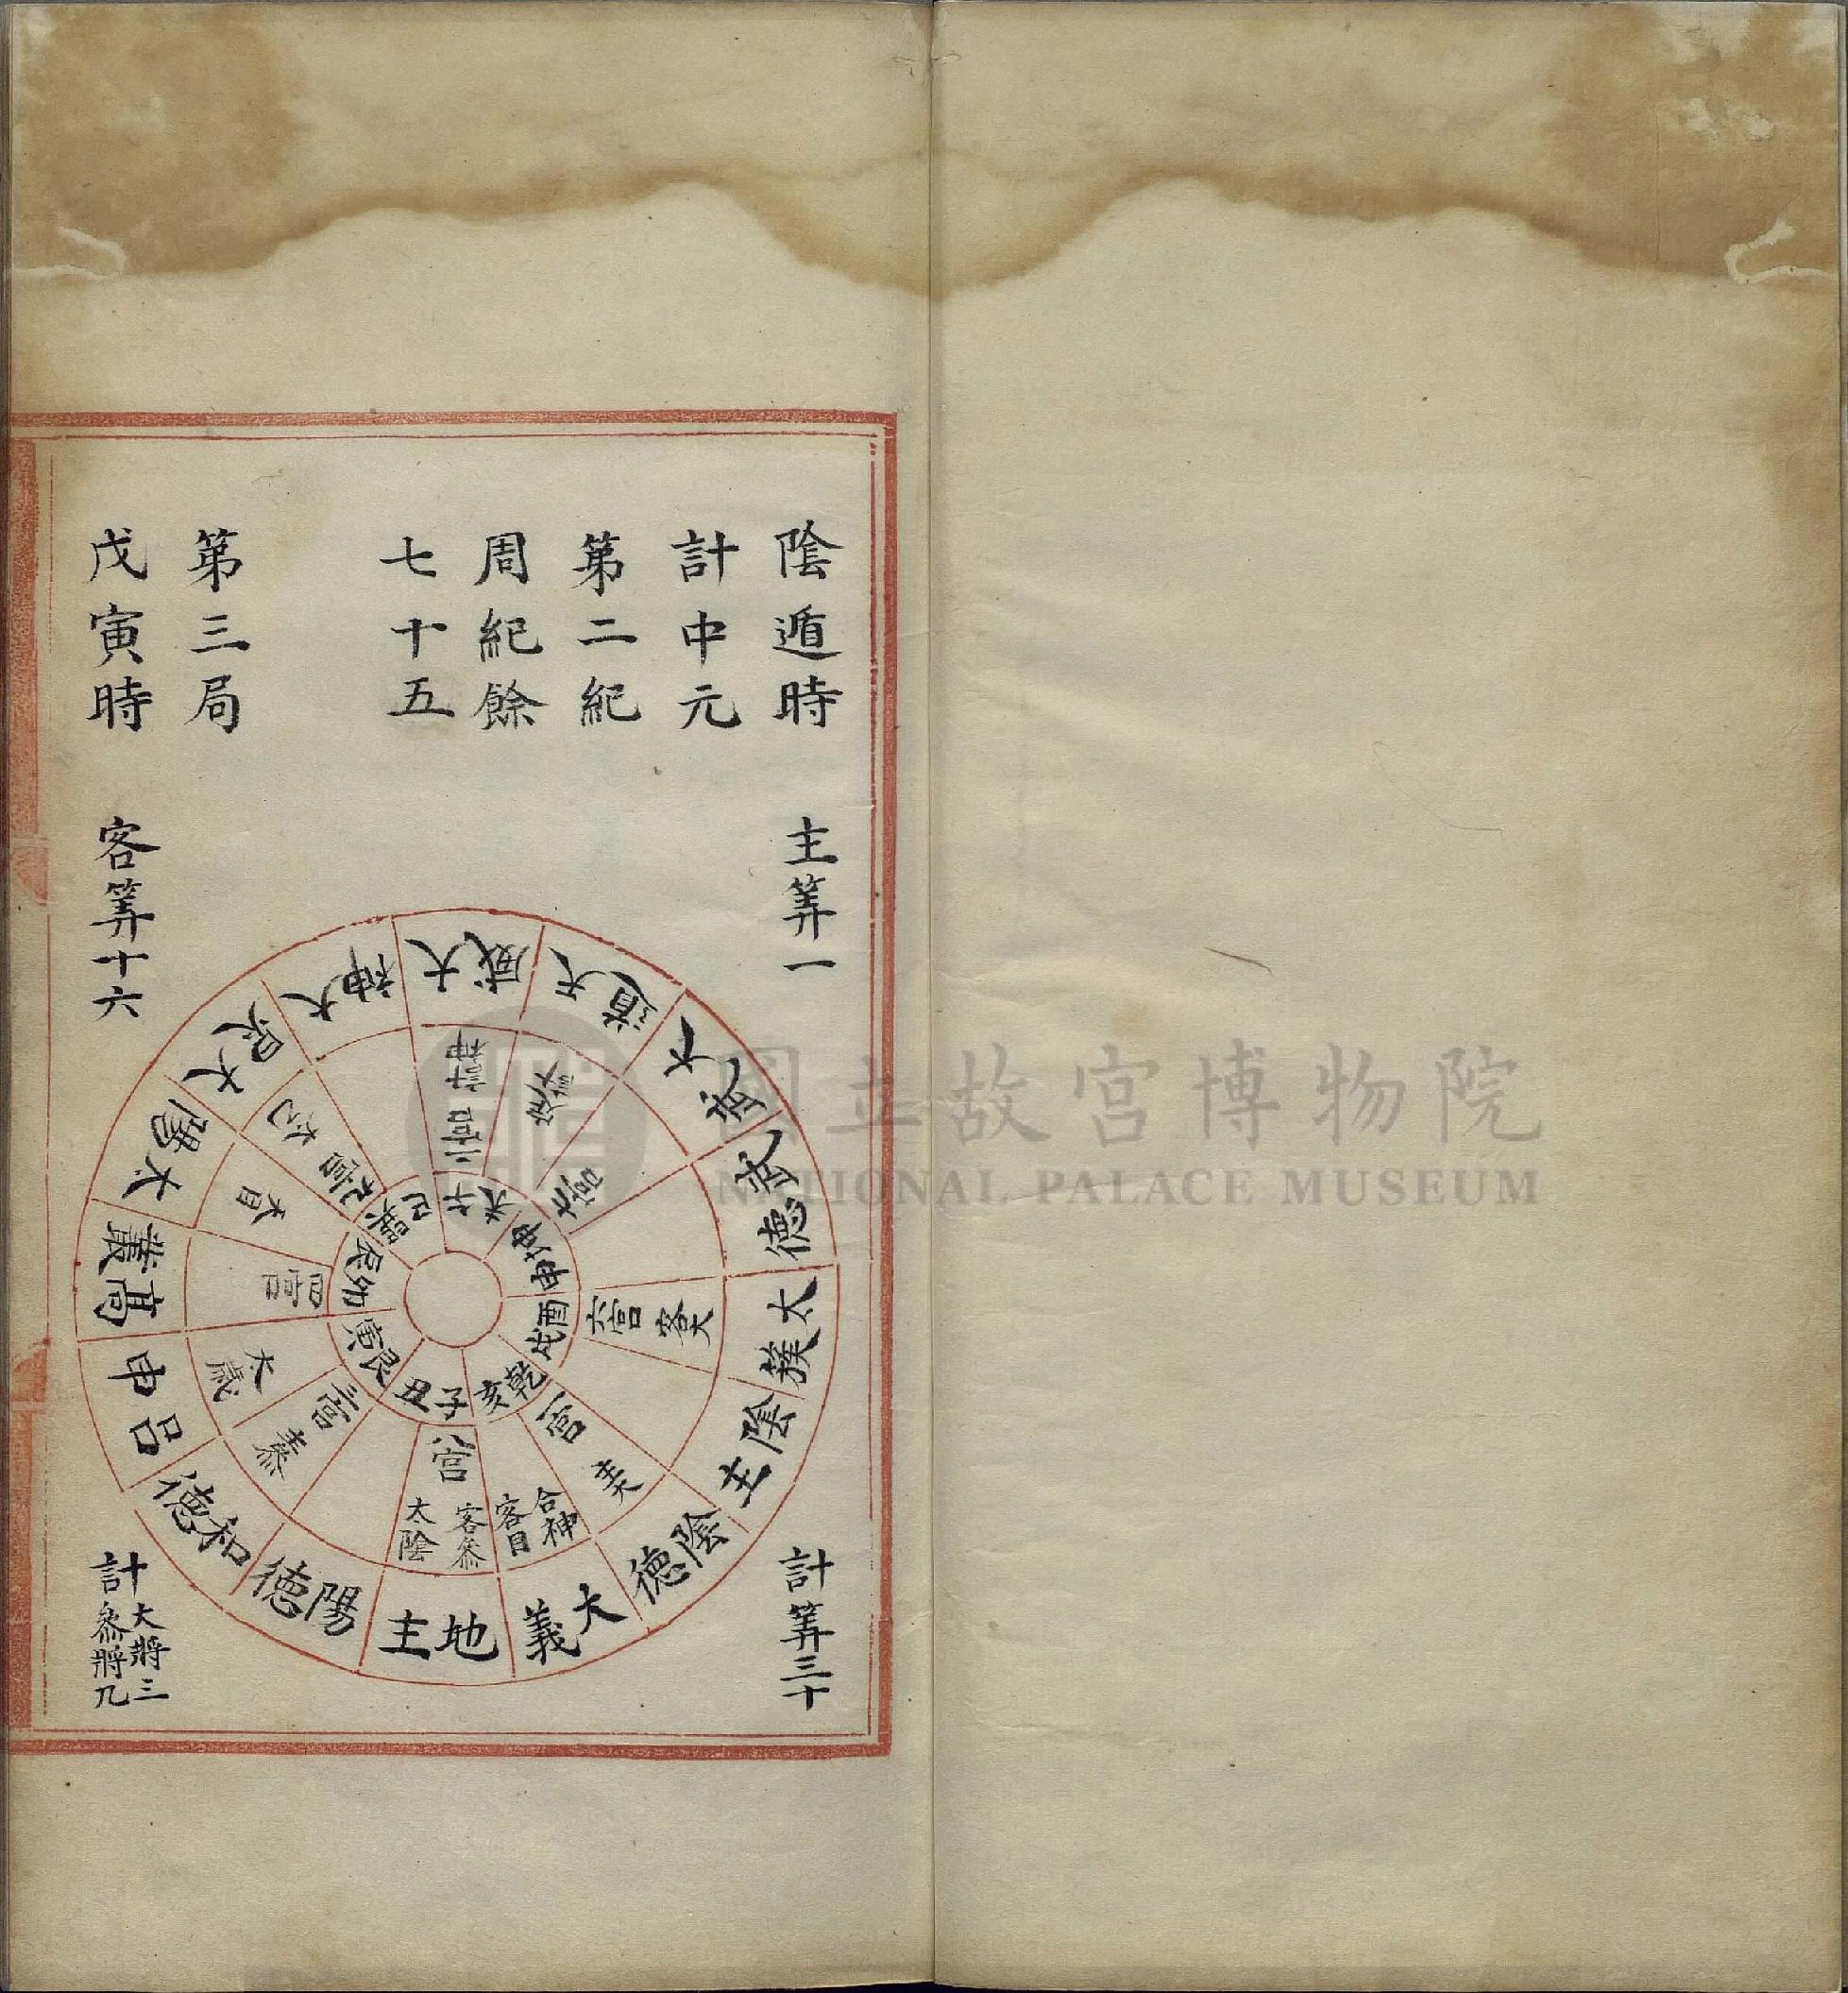 陰遁時
計中元
第二紀
周紀餘
七十五
第三局
戊寅時
主筭一
客筭十六
計筭三十
計大將三
參將九
大神
大威
天道
大武
武德
太簇
陰主
陰德
大義
地主
陽德
和德
呂申
高叢
太陽
大炅
計神
二宮
六宮
客大
一宮
合神
客目
八宮
客參
太陰
太歲
四宮
九宮
巽
巳
午
未
坤
申
酉
戌
乾
亥
子
丑
艮
寅
卯
辰
國立故宮博物院
NATIONAL PALACE MUSEUM